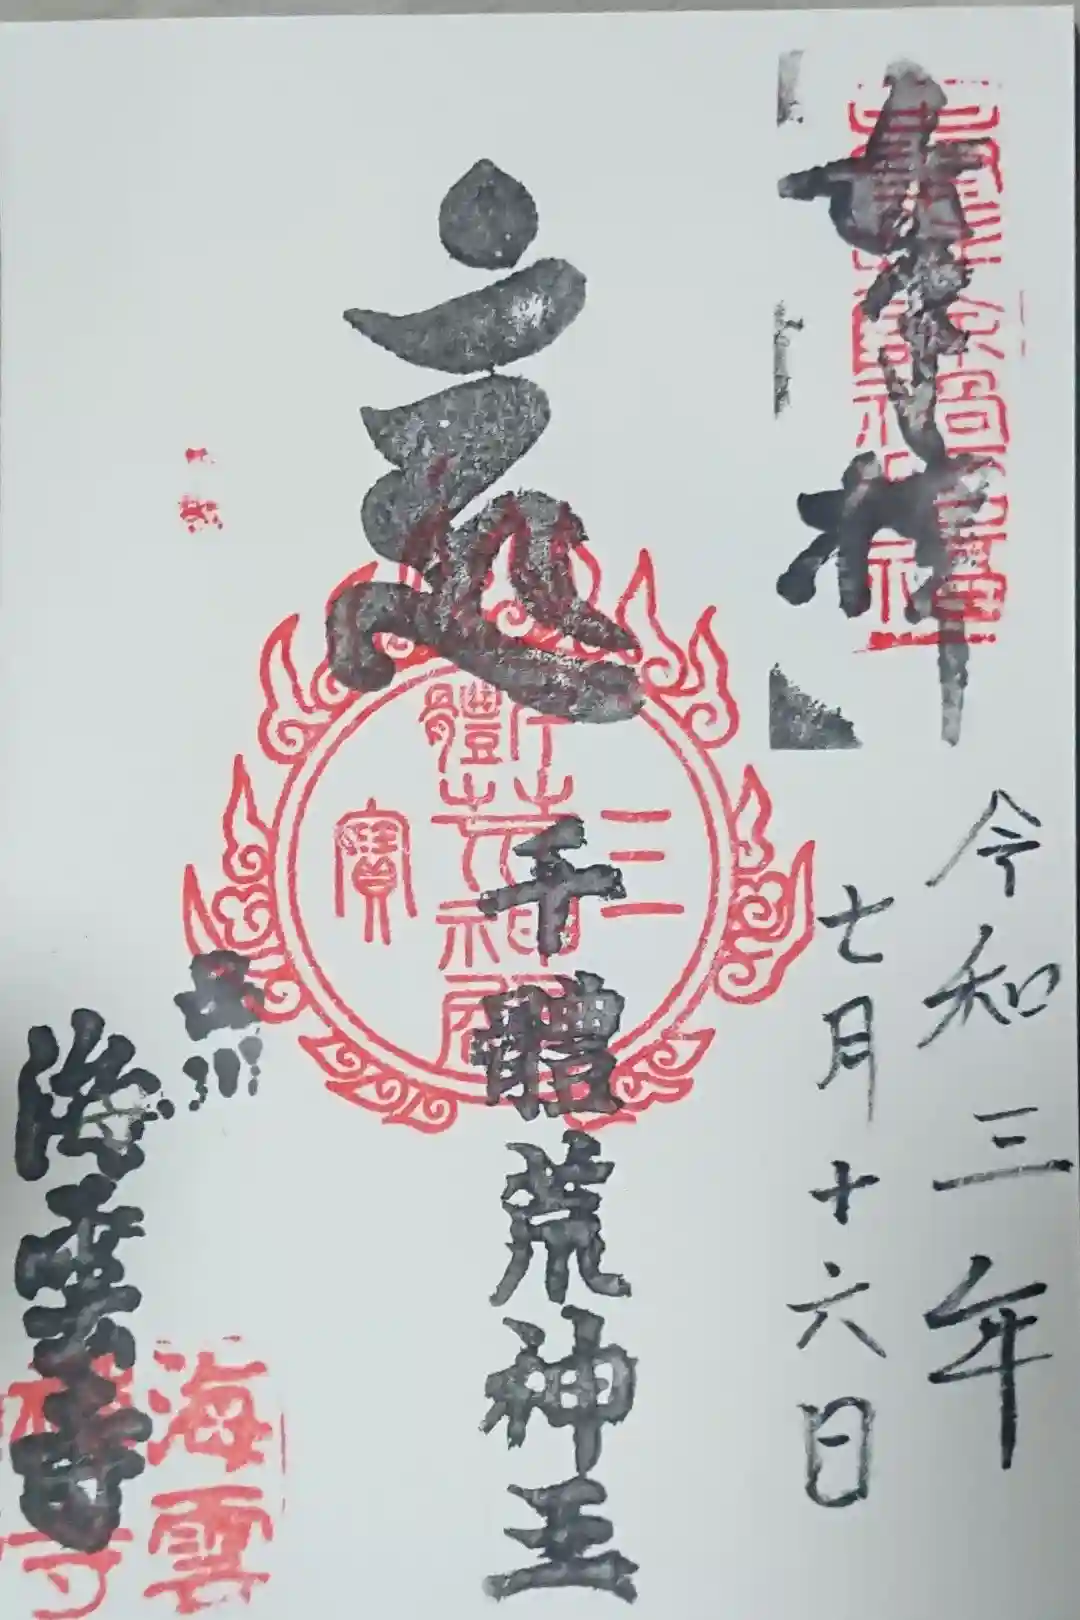 奉拝
令和三年
七月十六日
千體荒神王
三
寶
品川
海雲寺
海雲
禅寺